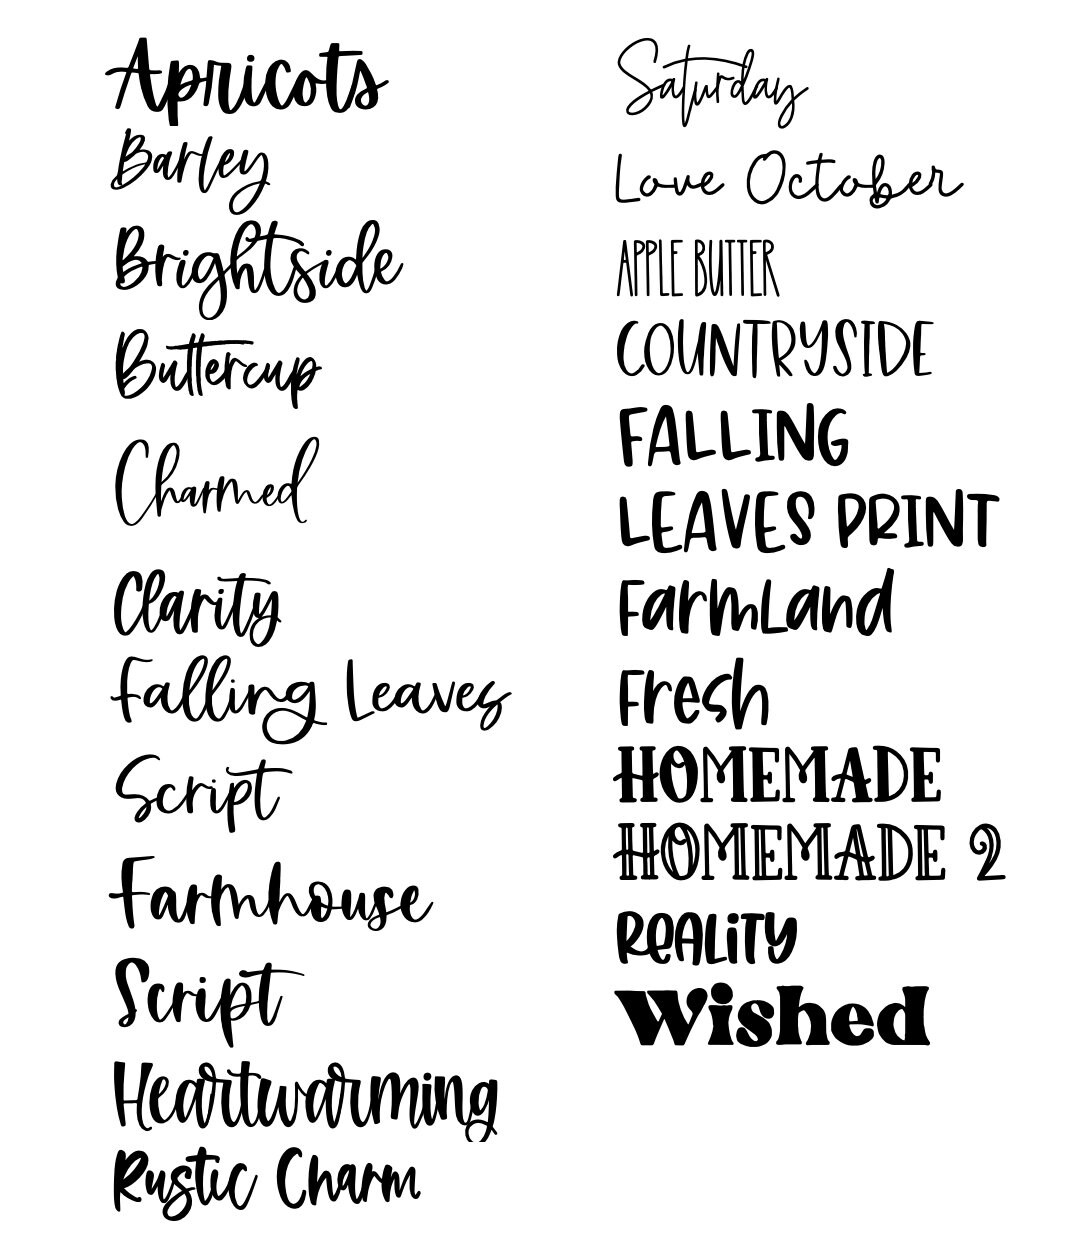 Apricots
Barley
Brightside
Buttercup
Charmed
Clarity
Falling Leaves
Script
Farmhouse
Script
Heartwarming
Rustic Charm
Saturday
Love October
APPLE BUTTER
COUNTRYSIDE
FALLING
LEAVES PRINT
Farmland
Fresh
HOMEMADE
HOMEMADE 2
ReALiTY
Wished